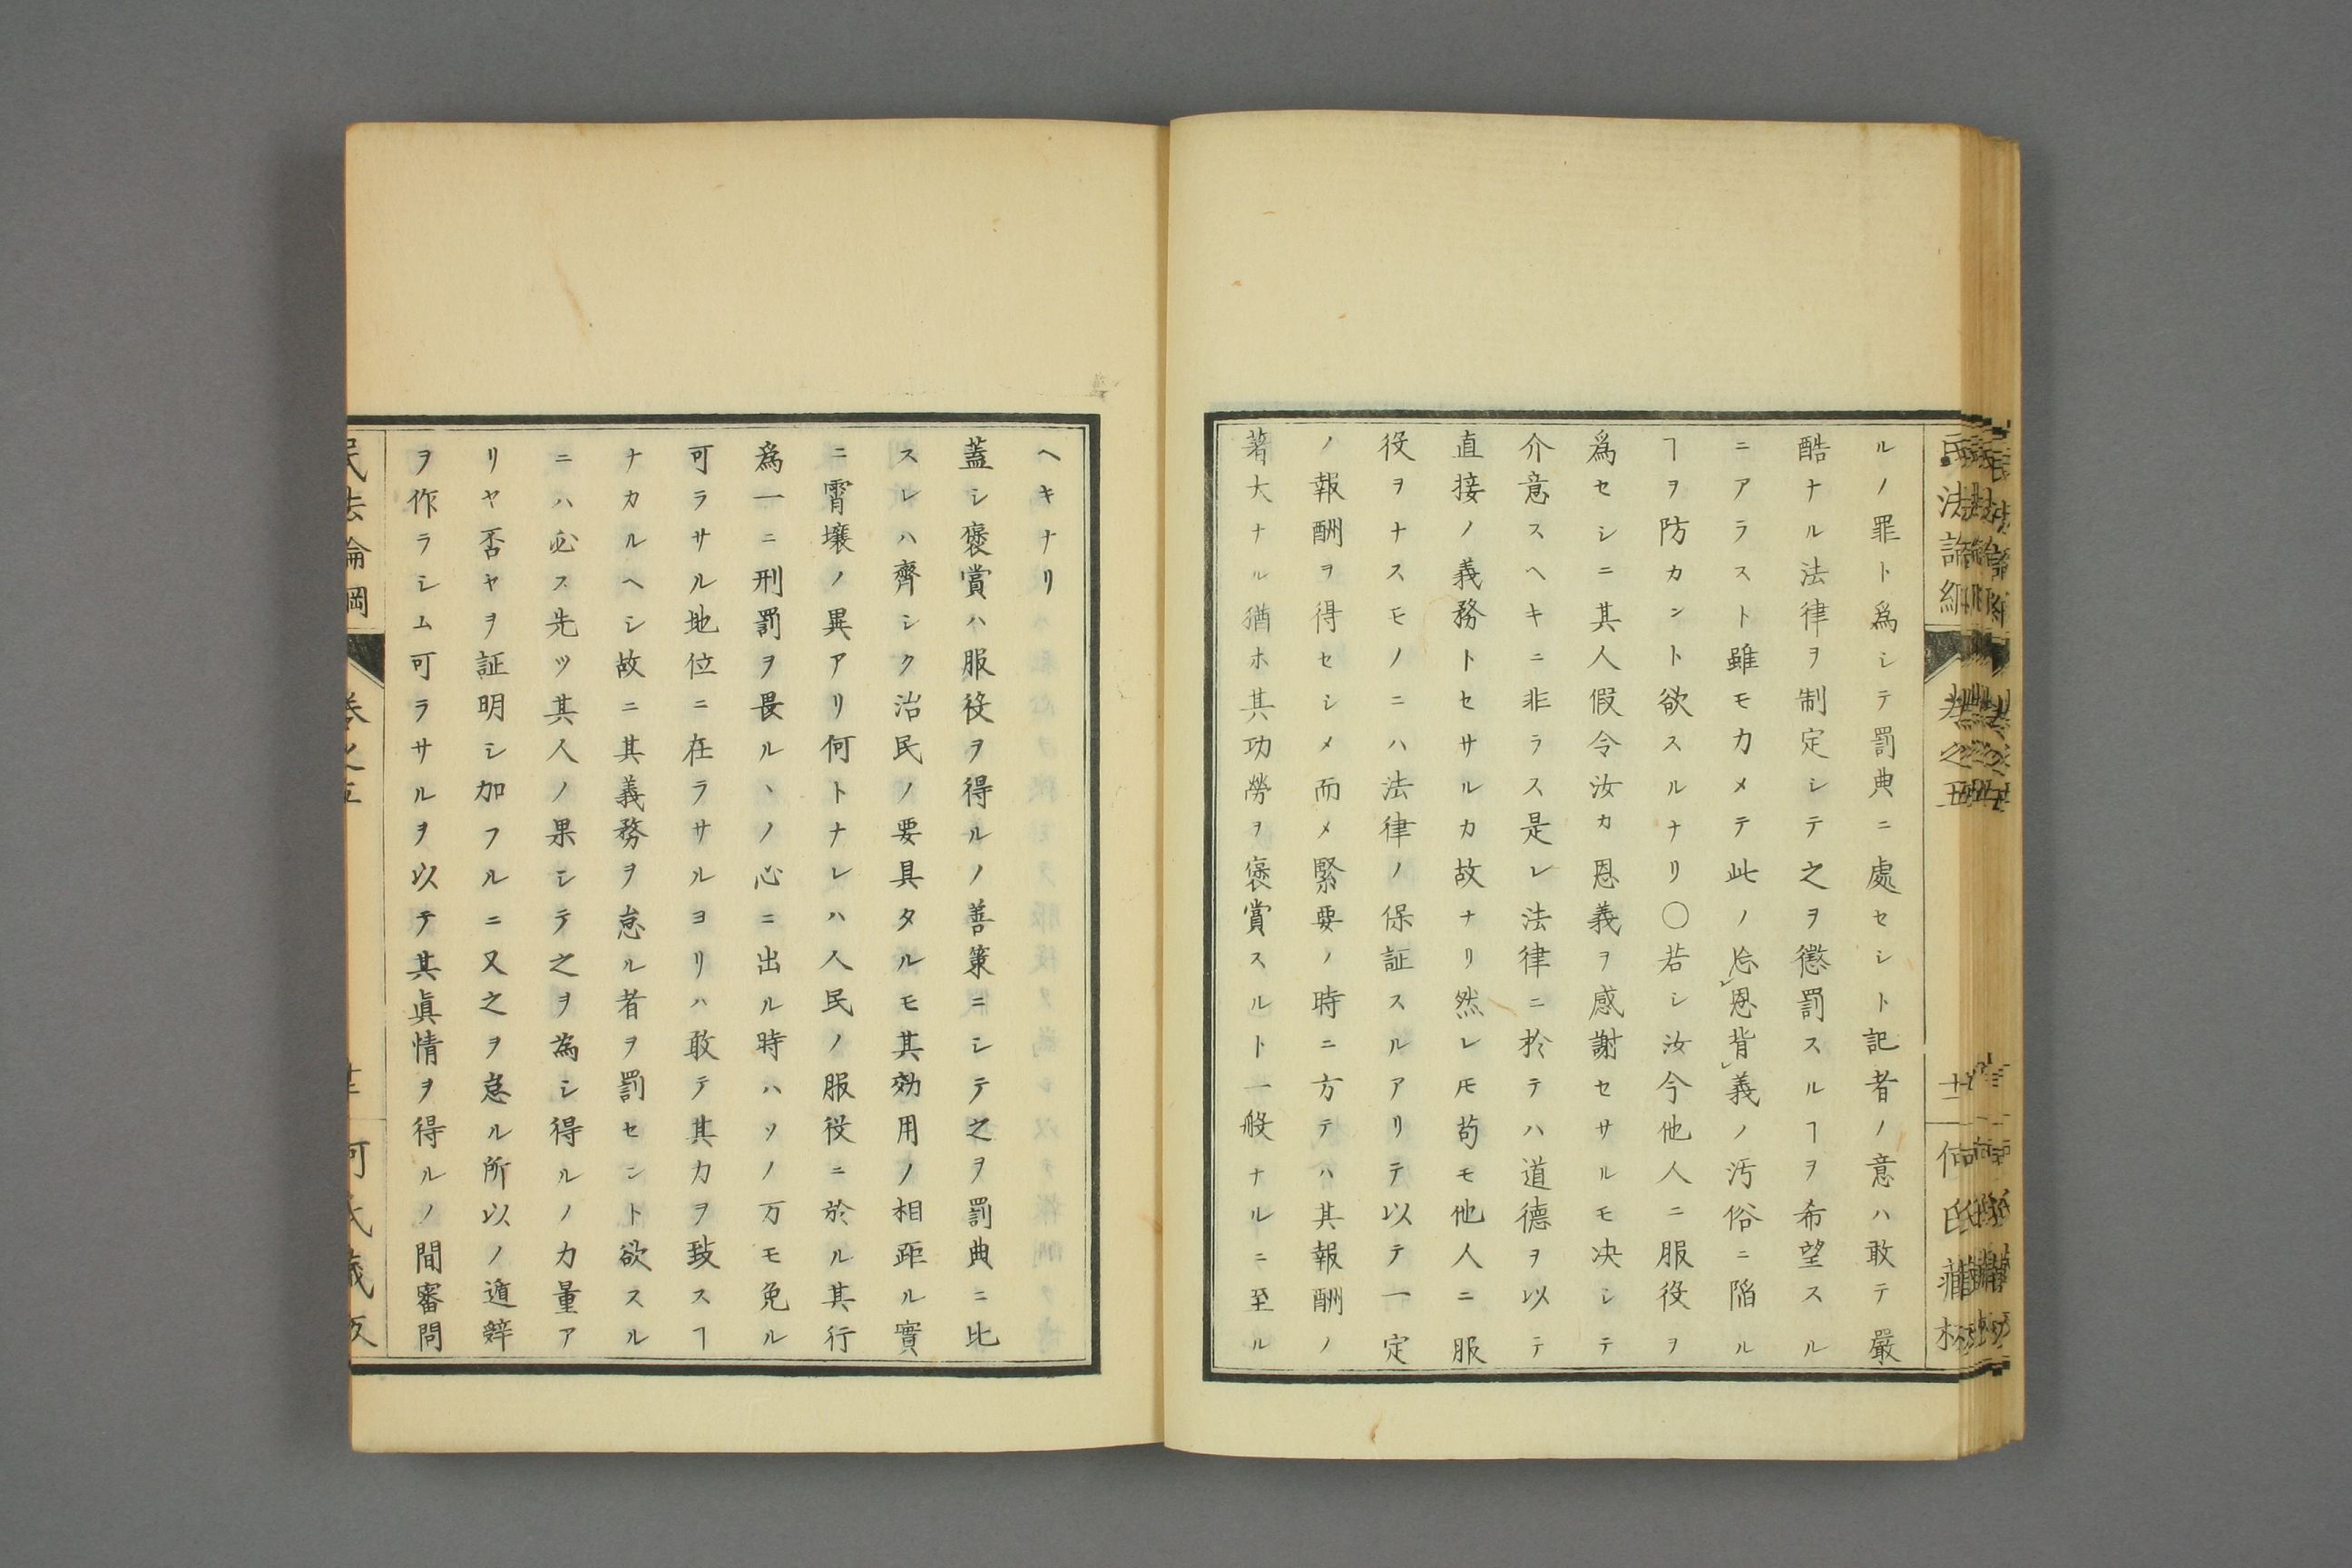 ルノ罪ト爲シテ罰典ニ處セシト記者ノ意ハ敢テ嚴
酷ナル法律ヲ制定シテ之ヲ懲罰スルヿヲ希望スル
ニアラスト雖モカメテ此ノ忘恩背義ノ汚俗ニ陷ル
ヿヲ防カント欲スルナリ〇若シ汝今他人ニ服役ヲ
爲セシニ其人假令汝カ恩義ヲ感謝セサルモ决シテ
介意スヘキニ非ラス是レ法律ニ於テハ道德ヲ以テ
直接ノ義務トセサルカ故ナリ然レ𪜈苟モ他人ニ服
役ヲナスモノニハ法律ノ保証スルアリテ以テ一定
ノ報酬ヲ得セシメ而メ緊要ノ時ニ方テハ其報酬ノ
著大ナル猶ホ其功勞ヲ褒賞スルト一般ナルニ至ル
ヘキナリ
蓋シ褒賞ハ服役ヲ得ルノ善策ニシテ之ヲ罰典ニ比
スレハ齊シク治民ノ要具タルモ其効用ノ相距ル實
ニ霄壤ノ異アリ何トナレハ人民ノ服役ニ於ル其行
爲一ニ刑罰ヲ畏ルヽノ心ニ出ル時ハソノ万モ免ル
可ラサル地位ニ在ラサルヨリハ敢テ其力ヲ致スヿ
ナカルヘシ故ニ其義務ヲ怠ル者ヲ罰セント欲スル
ニハ必ス先ツ其人ノ果シテ之ヲ為シ得ルノ力量ア
リヤ否ヤヲ証明シ加フルニ又之ヲ怠ル所以ノ遁辭
ヲ作ラシム可ラサルヲ以テ其眞情ヲ得ルノ間審問
民法論綱 卷之五